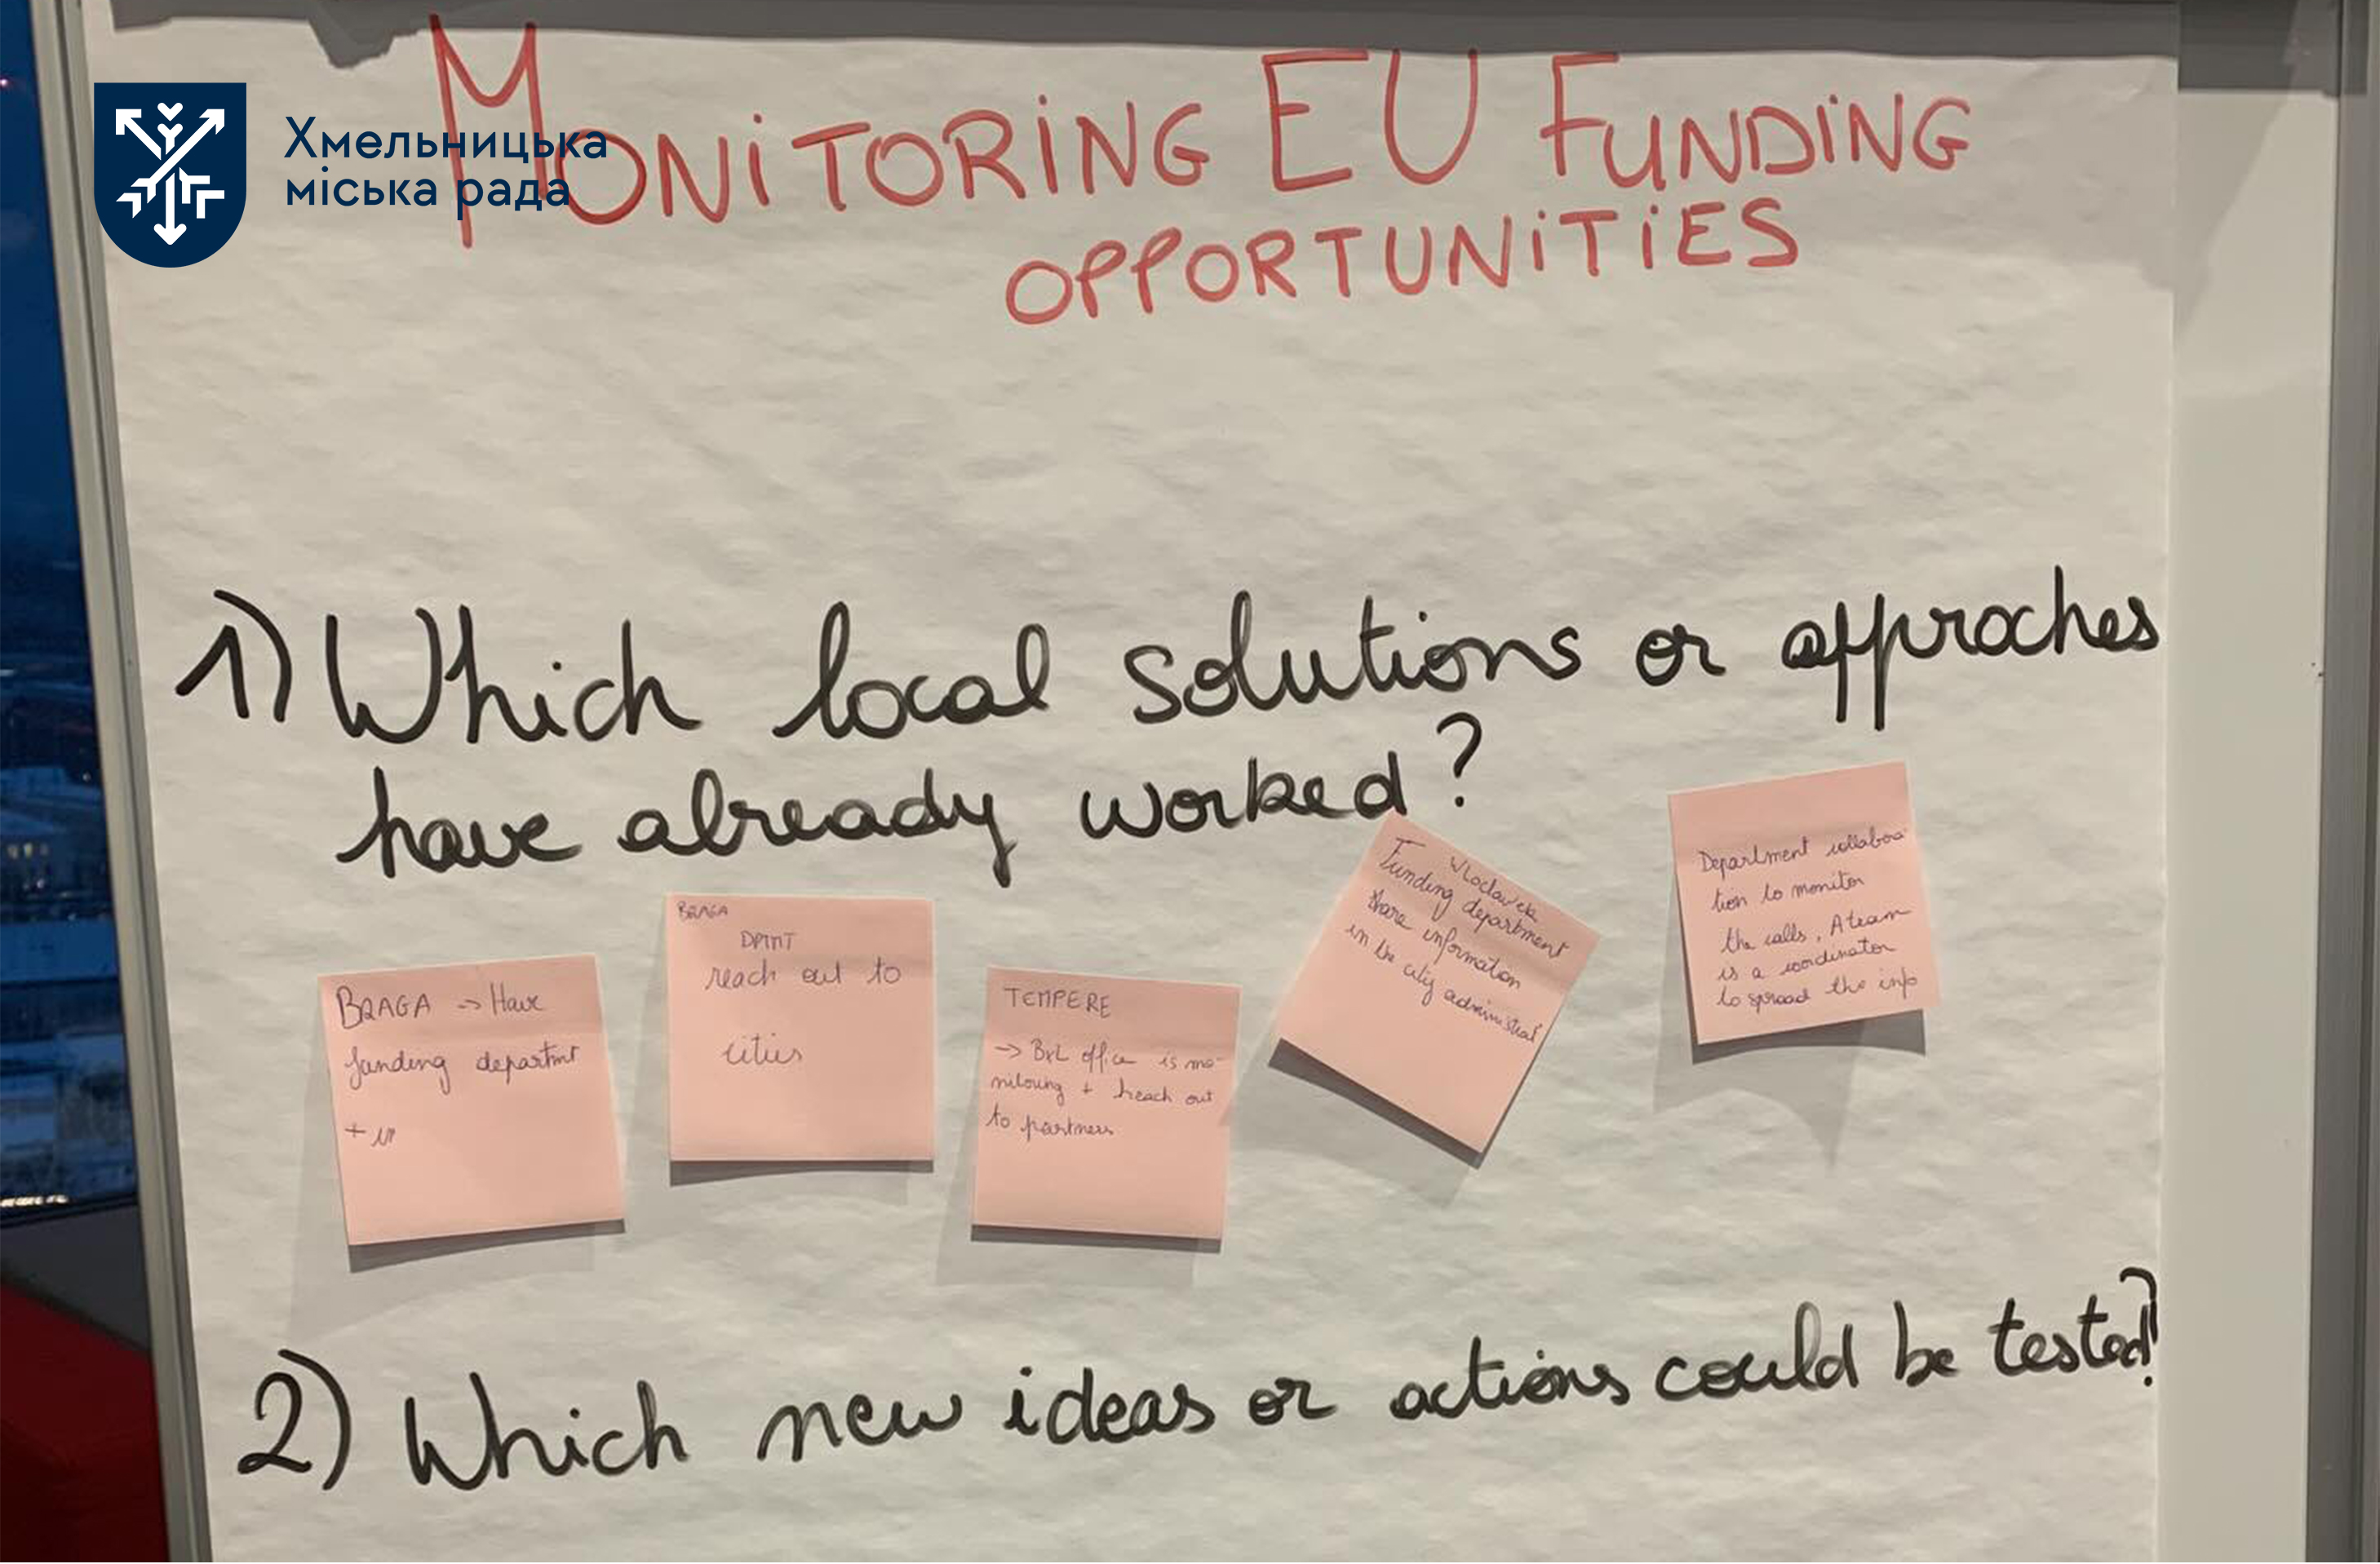 Хмельницька
міська рада
MONiTORiNG EU FUNDiNG
OPPORTUNiTiES
1) Which local solutions or approches
have already worked?
BRAGA -> Have
funding departmt
+
BRAGA
DPTMT
reach out to
cities
TEMPERE
-> BXL office is mo-
nitoring + reach out
to partners
Wloclawek
Funding department
share information
in the city administrat
Department collabora
tion to monitor
the calls, A team
is a coordinator
to spread the info
2) Which new ideas or actions could be tested?